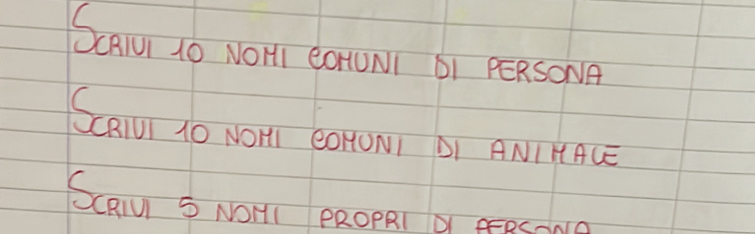 SCRIVI 10 NOMI COMUNI DI PERSONA
SCRIVI 10 NOMI COMUNI DI ANIMALE
SCRIVI 5 NOMI PROPRI DI PERSONA